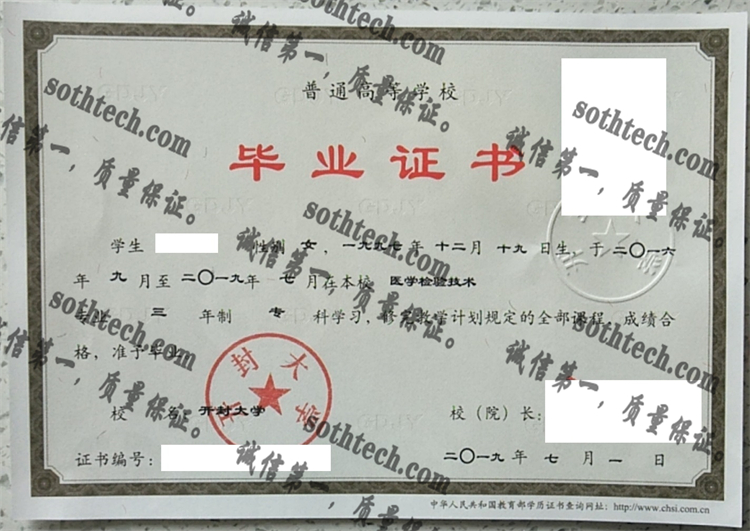 普通高等学校
毕业证书
学生 性别 女，一九九七年 十二月 十九 日生，于二〇一六
年 九 月至 二〇一九年 七 月在本校 医学检验技术
专业 三 年制 专 科学习，修完教学计划规定的全部课程，成绩合
格，准予毕业。
校 名：开封大学
校（院）长：
证书编号：
二〇一九 年 七 月 一 日
中华人民共和国教育部学历证书查询网址：http://www.chsi.com.cn
开封大学
sothtech.com
诚信第一，质量保证。
sothtech.com
诚信第一，质量保证。
sothtech.com
诚信第一，质量保证。
sothtech.com
诚信第一，质量保证。
sothtech.com
诚信第一，质量保证。
sothtech.com
诚信第一，质量保证。
sothtech.com
诚信第一，质量保证。
sothtech.com
诚信第一，质量保证。